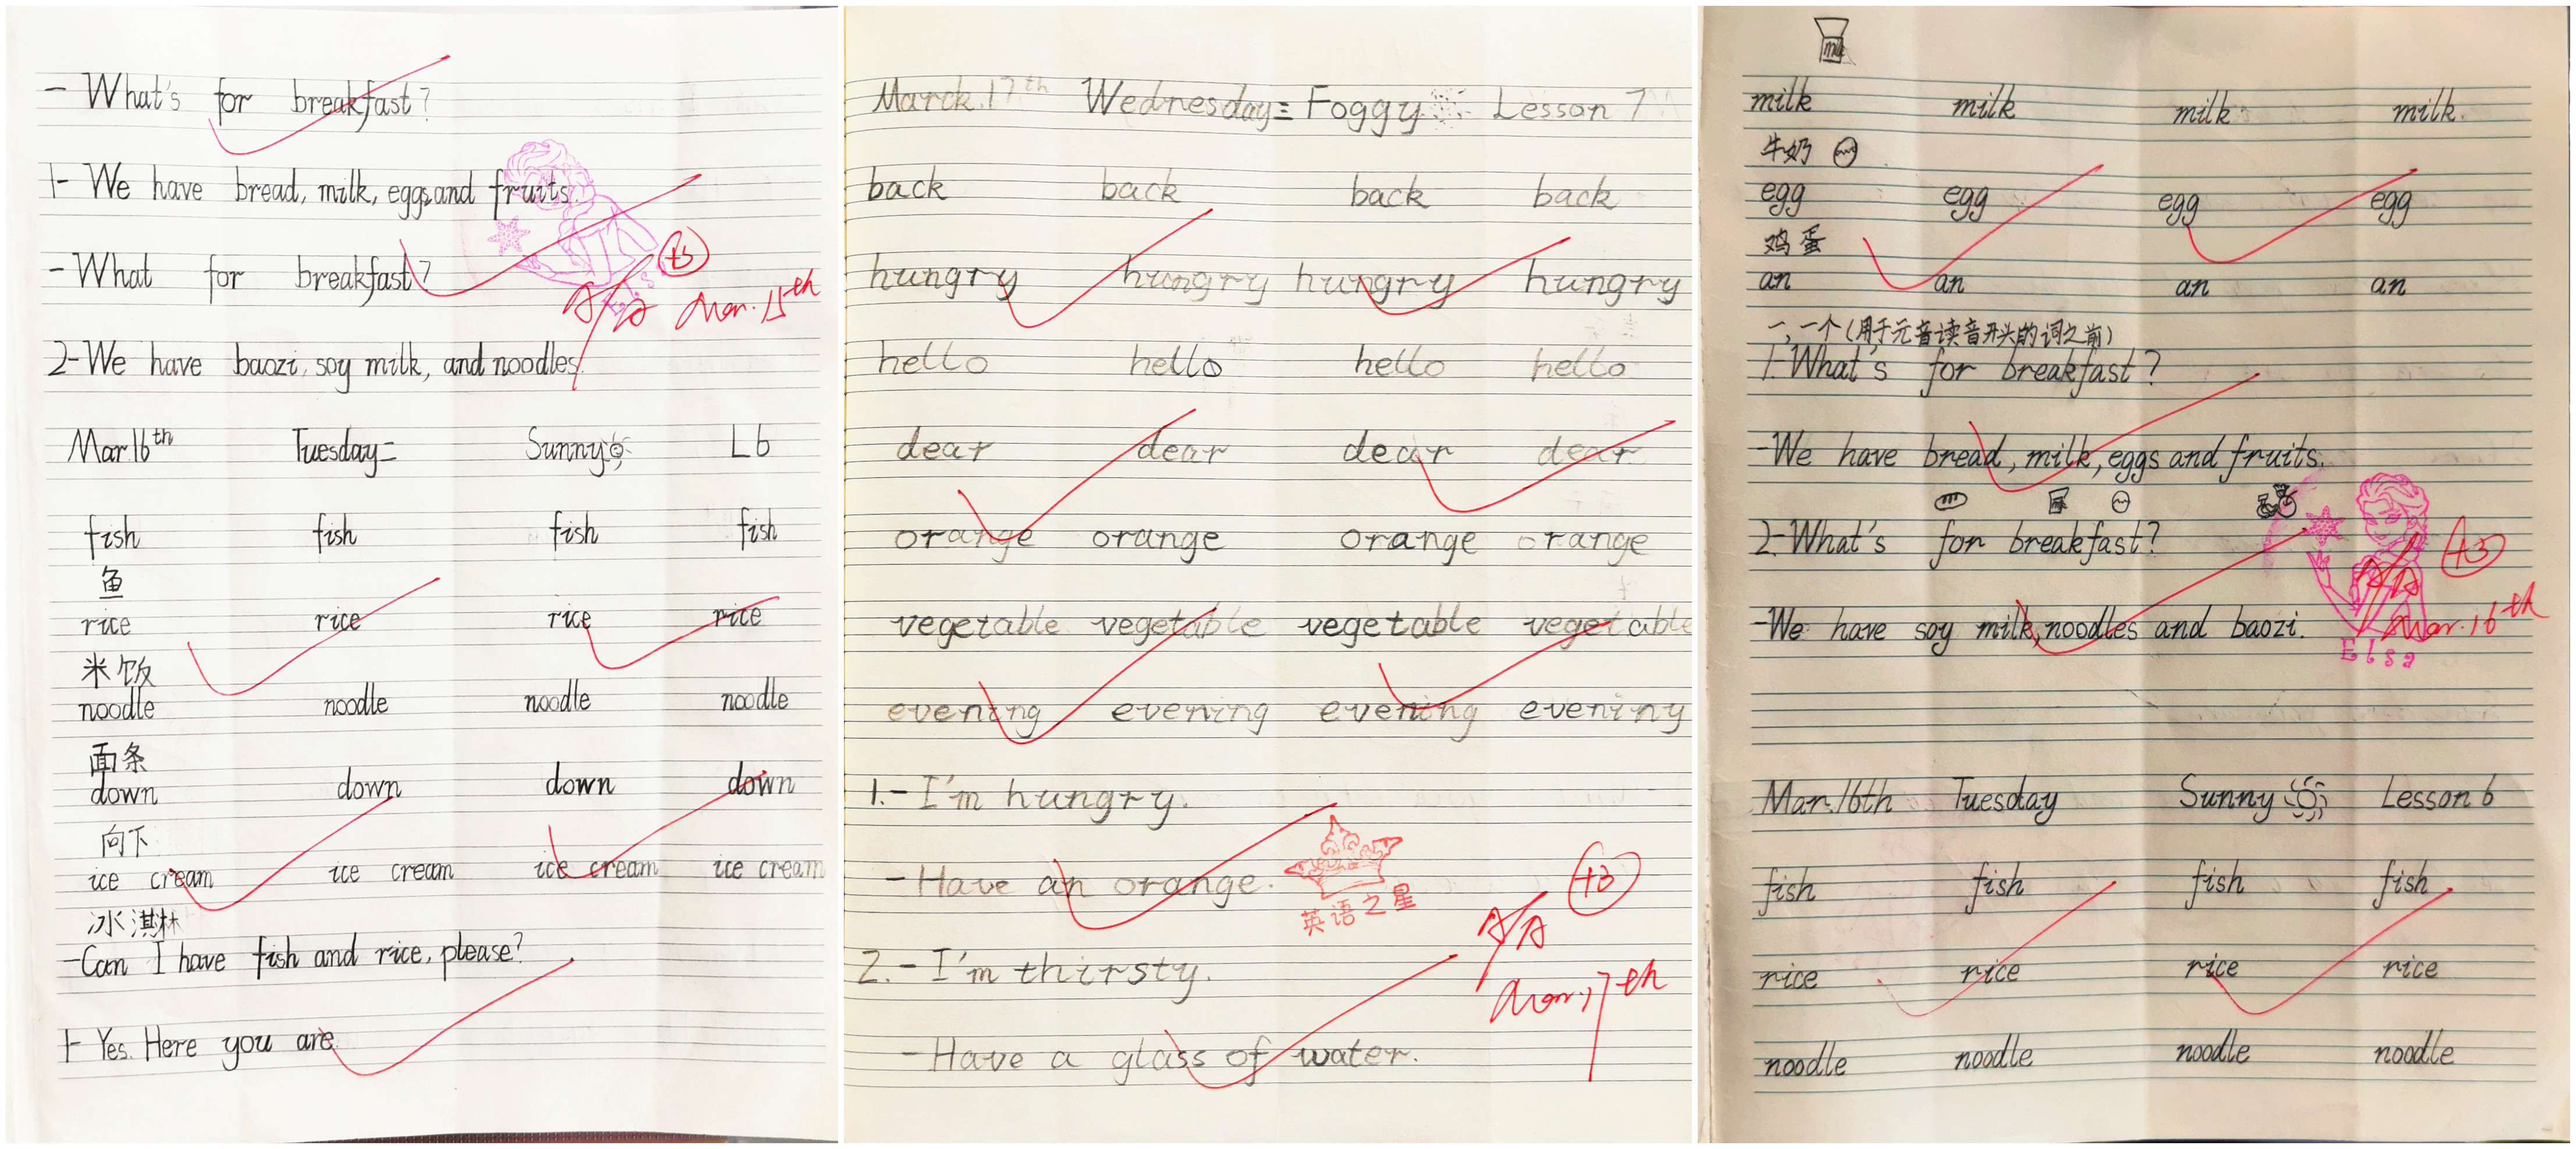 - What's for breakfast?
1- We have bread, milk, eggs and fruits.
- What for breakfast?
+3
A/A Mar. 15th
2- We have baozi, soy milk, and noodles.
Mar 16th Tuesday= Sunny L6
fish fish fish fish
鱼
rice rice rice rice
米饭
noodle noodle noodle noodle
面条
down down down down
向下
ice cream ice cream ice cream ice cream
冰淇林
-Can I have fish and rice, please?
1- Yes. Here you are.
March 17th Wednesday= Foggy Lesson 7
back back back back
hungry hungry hungry hungry
hello hello hello hello
dear dear dear dear
orange orange orange orange
vegetable vegetable vegetable vegetable
evening evening evening eveniny
1.- I'm hungry.
- Have an orange.
英语之星
A/A +3
2.- I'm thirsty.
Mar. 17th
- Have a glass of water.
milk
milk milk milk milk
牛奶
egg egg egg egg
鸡蛋
an an an an
一,一个(用于元音读音开头的词之前)
1-What's for breakfast?
-We have bread, milk, eggs and fruits.
2-What's for breakfast?
+3
A/A
-We have soy milk, noodles and baozi.
Mar. 16th
Elsa
Mar. 16th Tuesday Sunny Lesson 6
fish fish fish fish
rice rice rice rice
noodle noodle noodle noodle